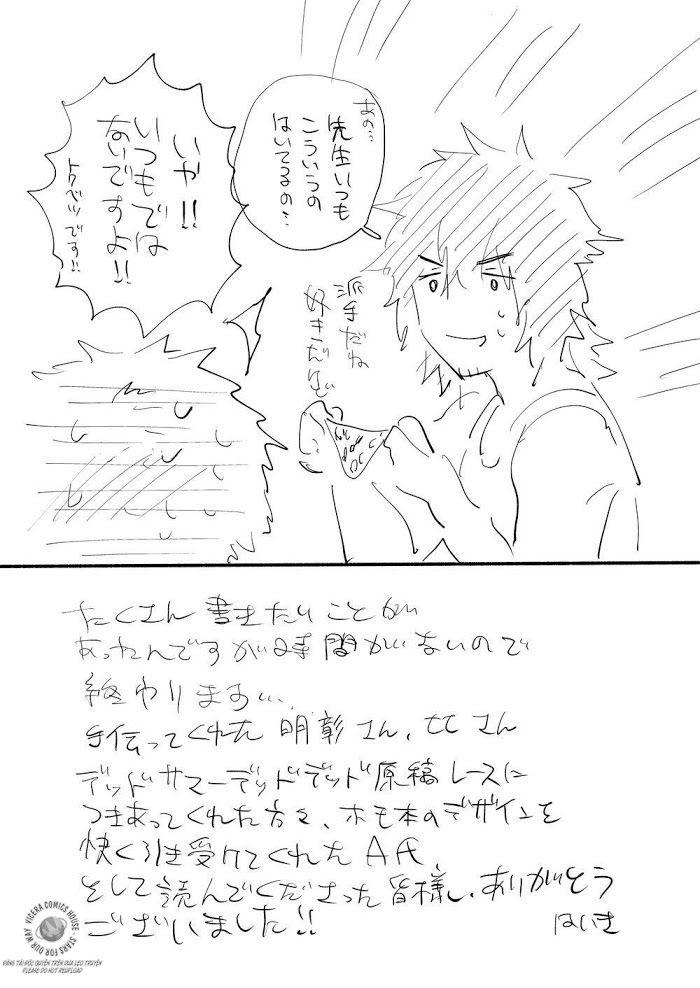 あの…
先生いつも
こういうの
はいてるの…
いや!!
いつもでは
ないですよ!!
トクベツです!!
派手だね
好きだぜ
たくさん書きたいことが
あったんですが時間がないので
終わります…
手伝ってくれた明彰さん、ヒヒさん
デッドサマーデッドデッド原稿レースに
つきあってくれた方々、ホモ本のデザインを
快く引き受けてくれたA氏、
そして読んでくださった皆様、ありがとう
ございました!!
はいき
VICERA COMICS HOUSE - STARS FOR OUR WAY
ĐĂNG TẢI ĐỘC QUYỀN TRÊN DƯA LEO TRUYỆN
PLEASE DO NOT REUPLOAD